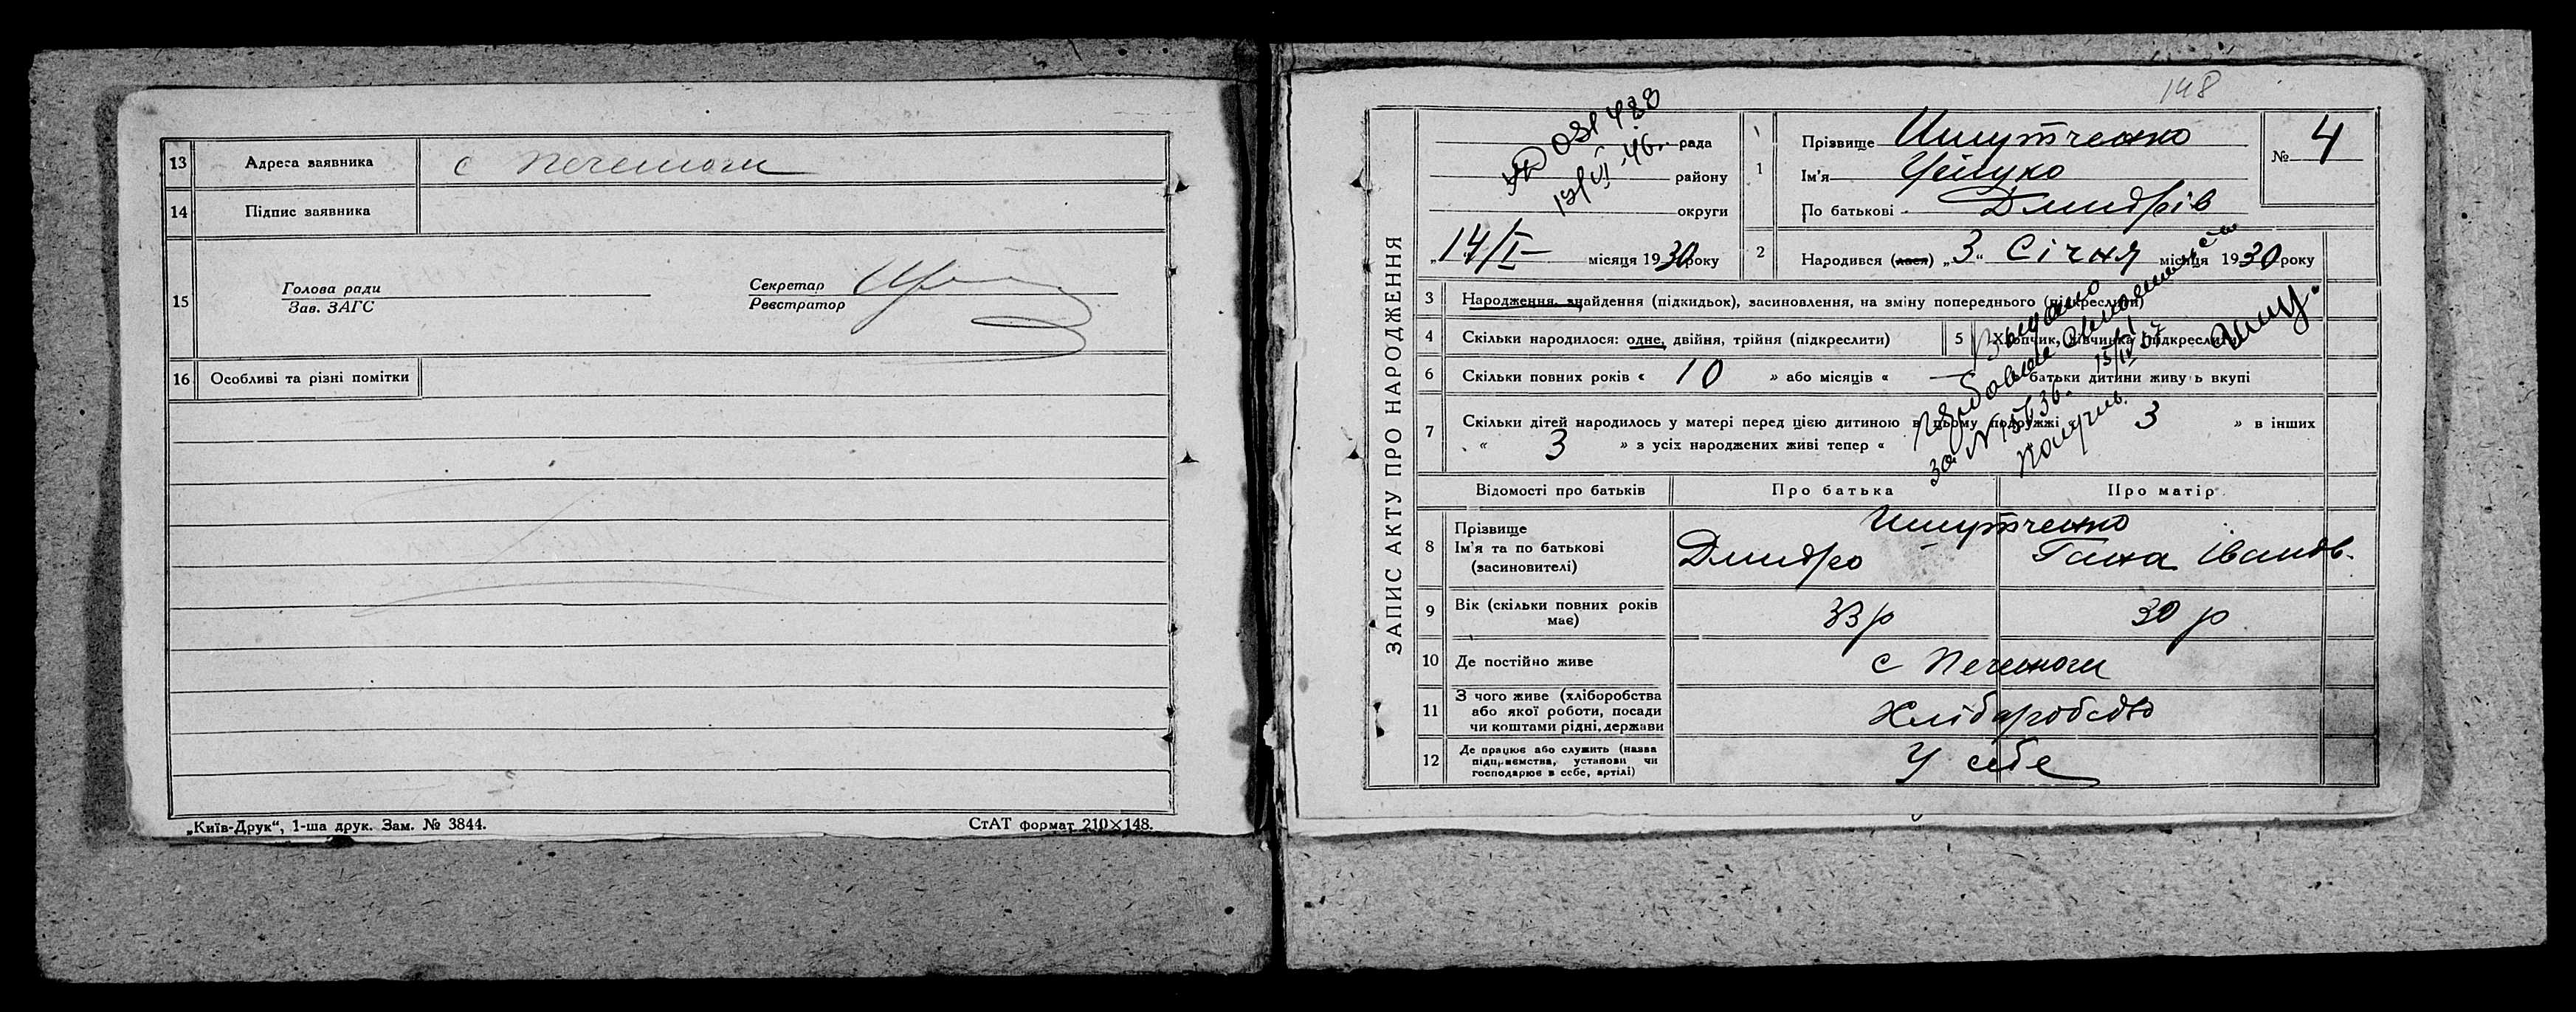 13 Адреса заявника с Печеноги
14 Підпис заявника
15 Голова ради
Зав. ЗАГС
Секретар
Реєстратор
16 Особливі та різні помітки
„Київ-Друк“, 1-ша друк. Зам. № 3844.
СтАТ формат 210×148.
148
ЗАПИС АКТУ ПРО НАРОДЖЕННЯ
рада
району
округи
„14/I— місяця 1930 року
1 Прізвище
Ім'я
По батькові - Дмитрів
№ 4
2 Народився (лася) „3“ Січня місяця 1930 року
3 Народження, знайдення (підкидьок), засиновлення, на зміну попереднього (підкреслити)
4 Скільки народилося: одне, двійня, трійня (підкреслити)
5 Хлопчик, дівчинка (підкреслити)
6 Скільки повних років « 10 » або місяців « — батьки дитини живуть вкупі
7 Скільки дітей народилось у матері перед цією дитиною в цьому подружжі 3 » в інших
« 3 » з усіх народжених живі тепер «
Відомості про батьків Про батька Про матір
8 Прізвище
Ім'я та по батькові
(засиновителі)
Дмитро Гана Іванов.
9 Вік (скільки повних років
має)
33 р 30 р
10 Де постійно живе с Печеноги
11 З чого живе (хліборобства
або якої роботи, посади
чи коштами рідні, держави
Хліборобство
12 Де працює або служить (назва
підприємства, установи чи
господарює в себе, артілі)
У себе